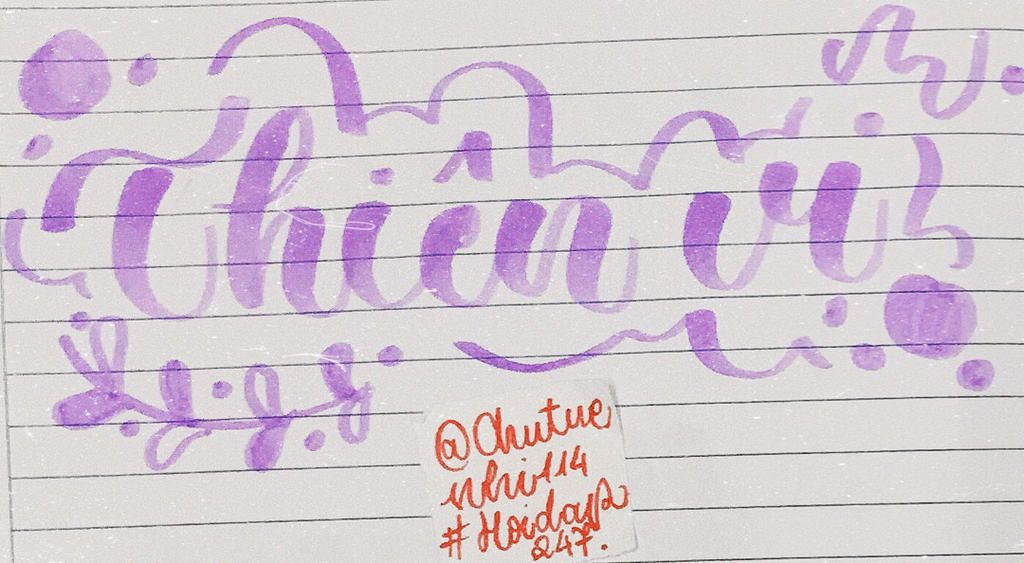 Thiên vị
@Chutue
nhi114
#Hoidap
247.